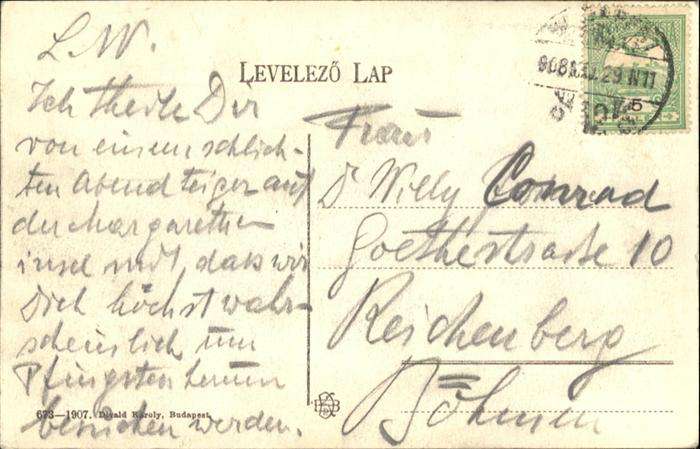 LEVELEZŐ LAP
L. W.
Ich theile Dir
von einem schlich-
ten Abend
auf
der Margarethen
insel mit, dass wir
Dich höchst wahr-
scheinlich um
Pfingsten herum
besuchen werden.
Frau
Dr Willy Conrad
Goethestrasse 10
Reichenberg
Böhmen
673—1907. Divald Károly, Budapest.
5